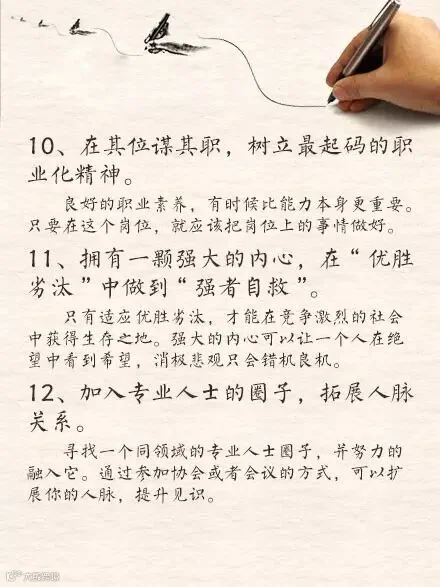 10、在其位谋其职，树立最起码的职
业化精神。
良好的职业素养，有时候比能力本身更重要。
只要在这个岗位，就应该把岗位上的事情做好。
11、拥有一颗强大的内心，在“优胜
劣汰”中做到“强者自救”。
只有适应优胜劣汰，才能在竞争激烈的社会
中获得生存之地。强大的内心可以让一个人在绝
望中看到希望，消极悲观只会错机良机。
12、加入专业人士的圈子，拓展人脉
关系。
寻找一个同领域的专业人士圈子，并努力的
融入它。通过参加协会或者会议的方式，可以扩
展你的人脉，提升见识。